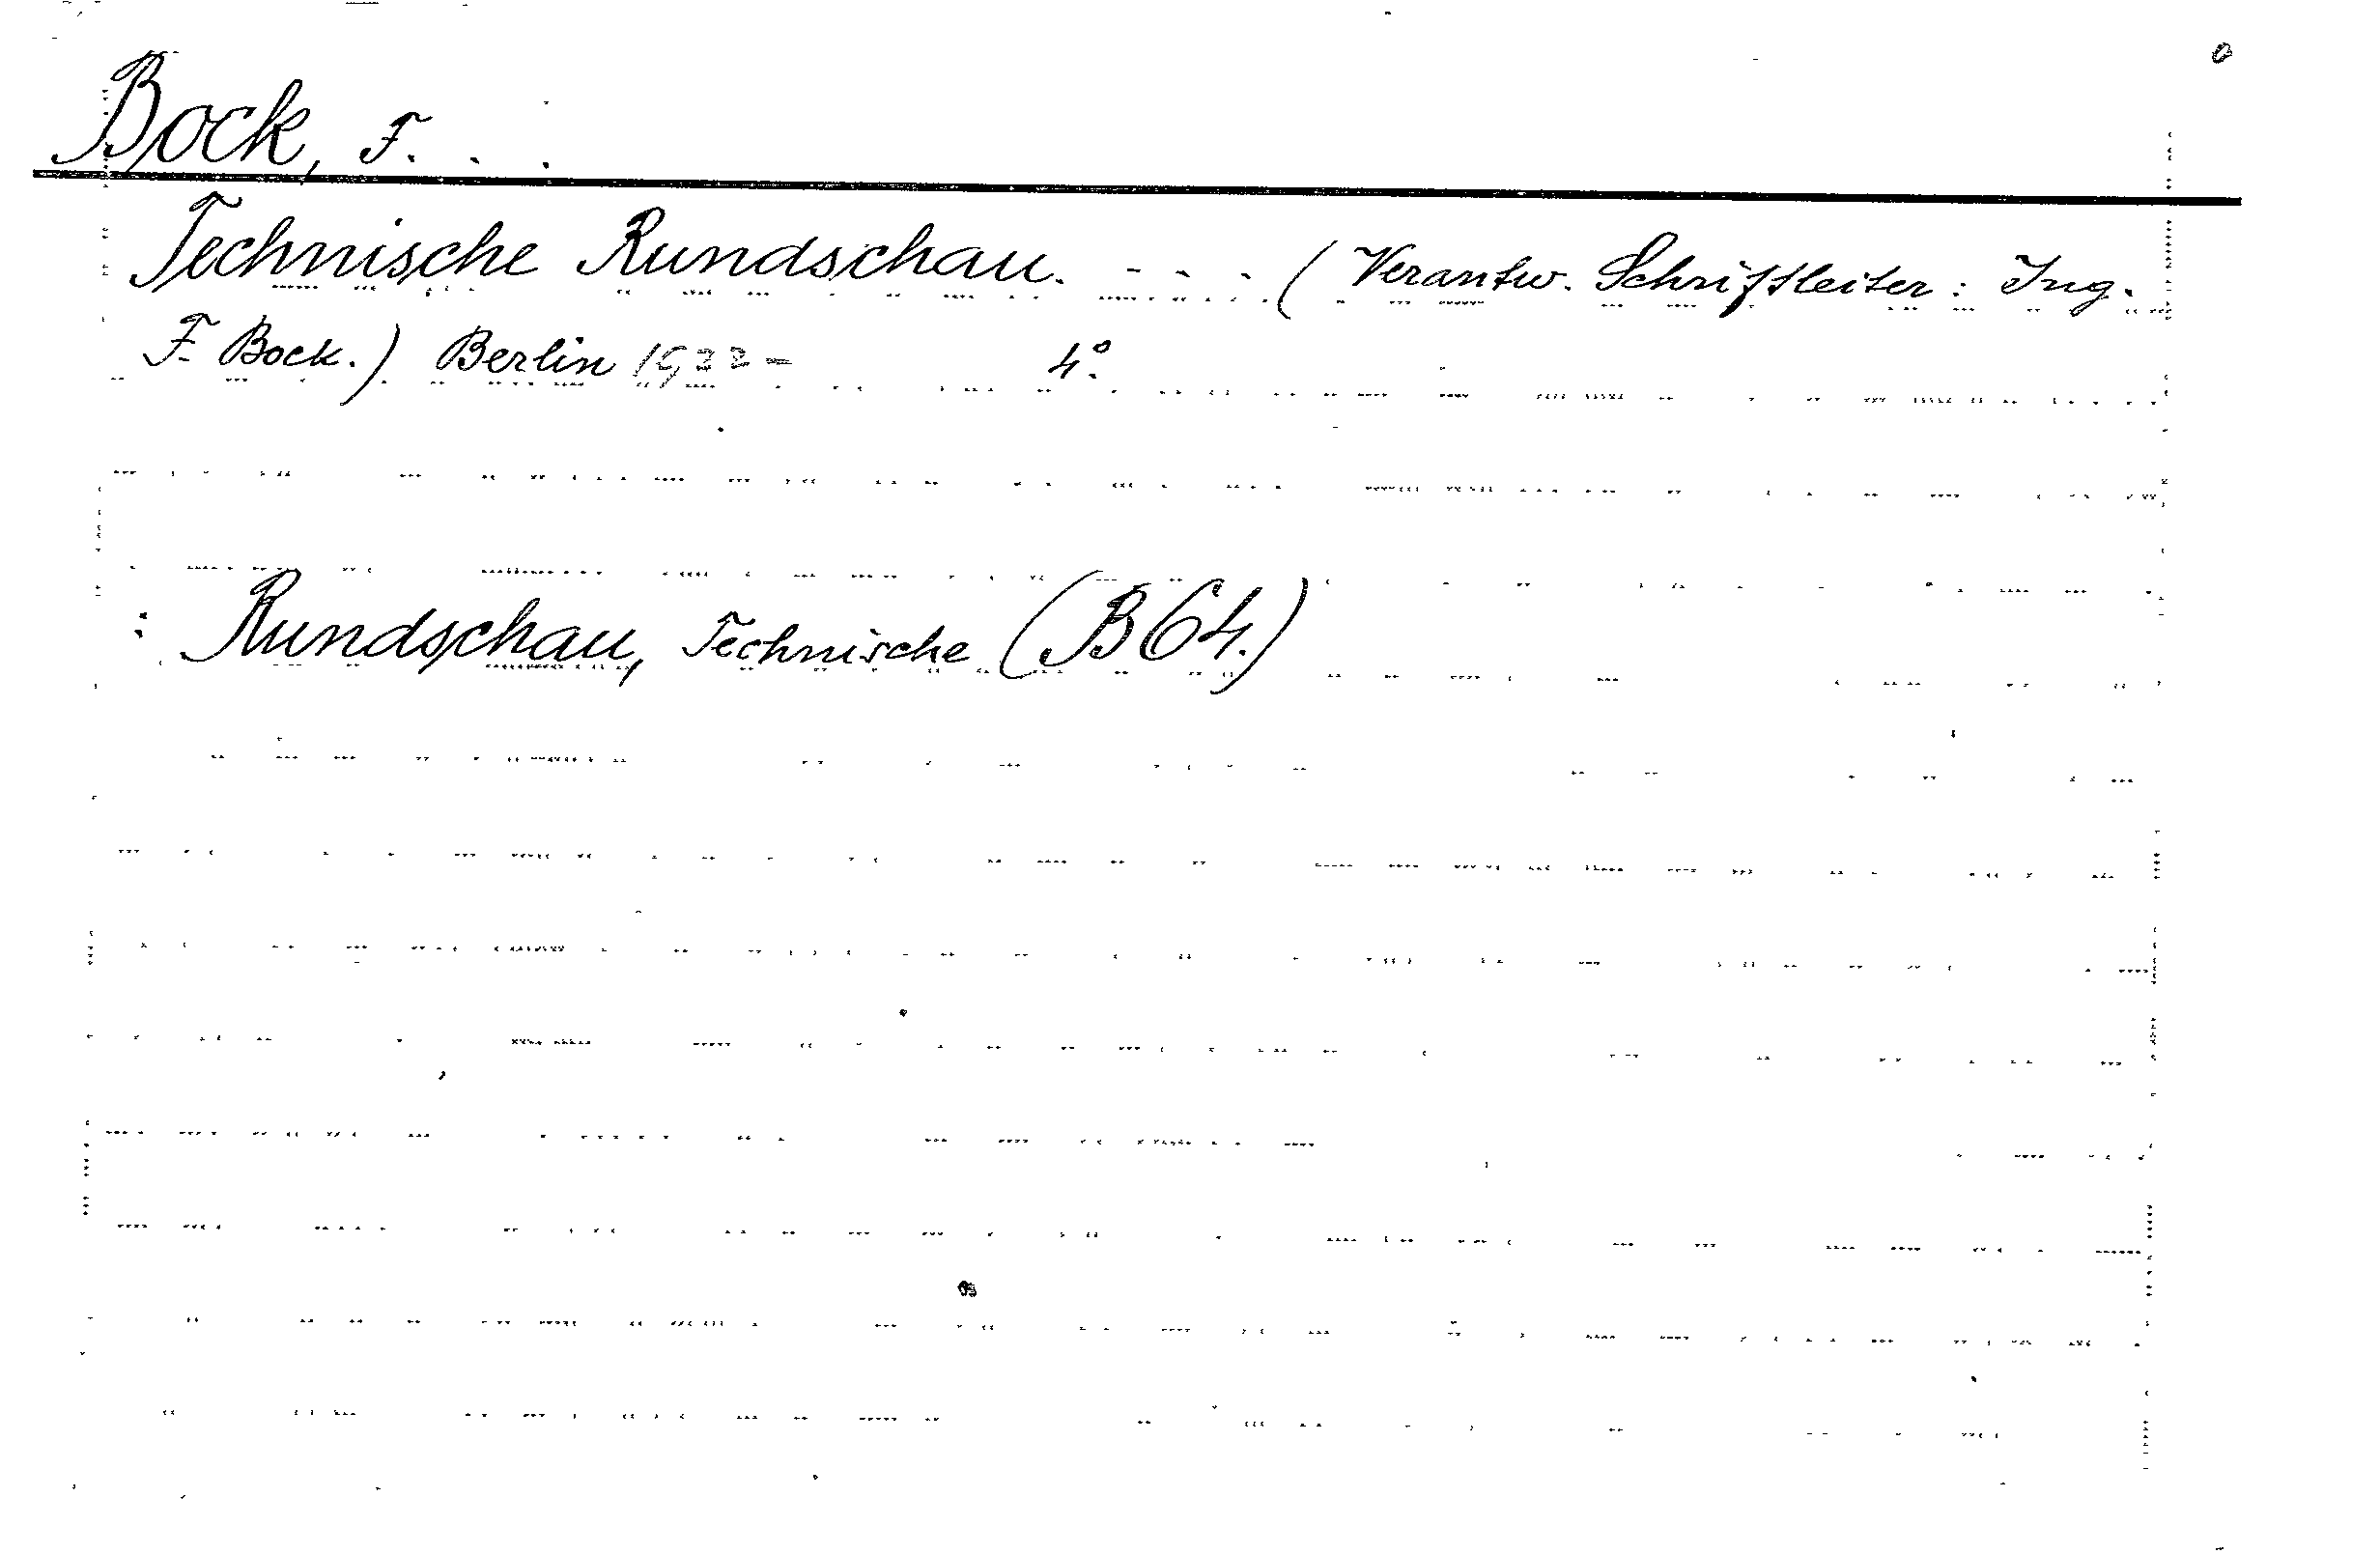 Bock, F. . .
Technische Rundschau. - - - (Verantw. Schriftleiter: Ing.
F. Bock.) Berlin 1932- 4°.
: Rundschau, Technische (B 64.)